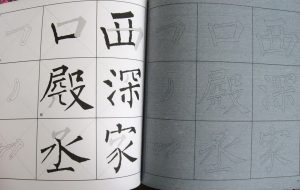 西深家
口殿丞